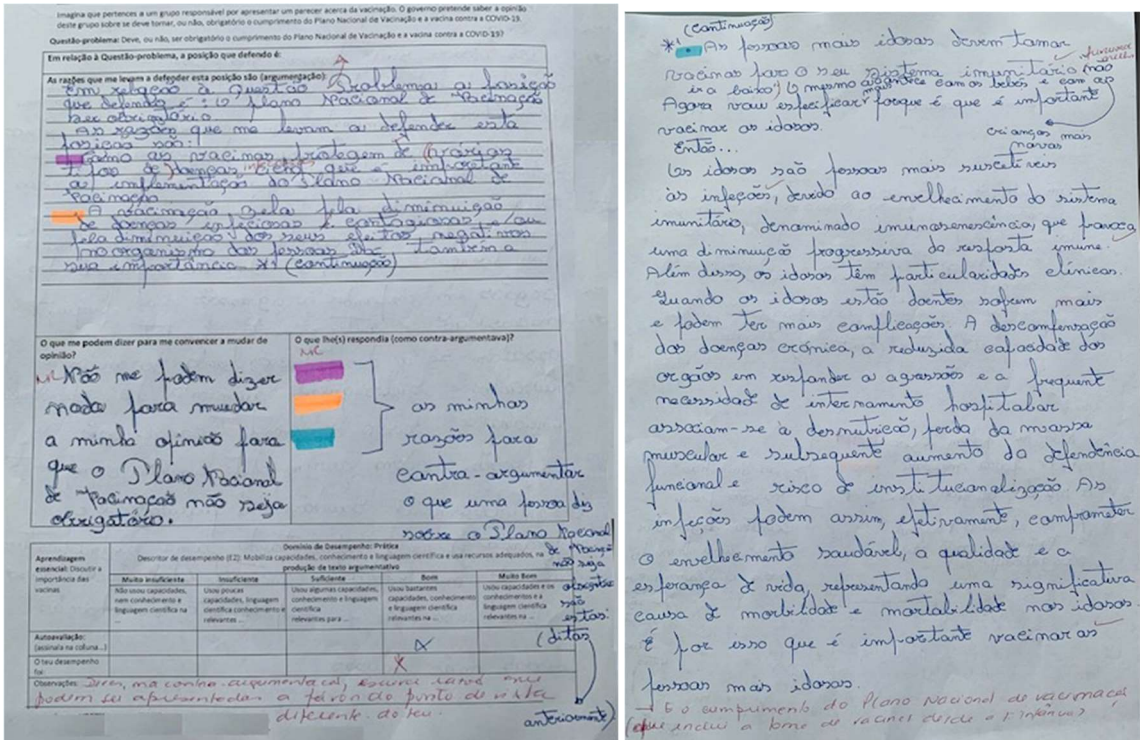 Imagina que pertences a um grupo responsável por apresentar um parecer acerca da vacinação. O governo pretende saber a opinião
deste grupo sobre se deve tornar, ou não, obrigatório o cumprimento do Plano Nacional de Vacinação e a vacina contra a COVID-19.
Questão-problema: Deve, ou não, ser obrigatório o cumprimento do Plano Nacional de Vacinação e a vacina contra a COVID-19?
Em relação à Questão-problema, a posição que defendo é:
As razões que me levam a defender esta posição são (argumentação):
Em relação à Questão Problema a posição
que defendo é: O Plano Nacional de Vacinação
ser obrigatório
As razões que me levam a defender esta
posição são:
Como as vacinas protegem de várias
doenças, que é importante
a implementação do Plano Nacional de
Vacinação
A vacinação zela pela diminuição
de doenças infeciosas e contagiosas e/ou
pela diminuição dos seus efeitos negativos
no organismo das pessoas também a
sua importância *¹ (continuação)
O que me podem dizer para me convencer a mudar de
opinião?
Não me podem dizer
nada para mudar
a minha opinião para
que o Plano Nacional
de Vacinação não seja
obrigatório.
O que lhe(s) respondia (como contra-argumentava)?
MC
as minhas
razões para
contra-argumentar
o que uma pessoa diz
sobre o Plano Nacional
de Vacinação
não seja
obrigatório
são
estas:
(ditas
anteriormente)
Domínio de Desempenho: Prática
Aprendizagem
essencial: Discutir a
importância das
vacinas
Descritor de desempenho (E2): Mobiliza capacidades, conhecimento e linguagem científica e usa recursos adequados, na
produção de texto argumentativo
Muito Insuficiente
Insuficiente
Suficiente
Bom
Muito Bom
Não usou capacidades,
nem conhecimento e
linguagem científica na
...
Usou poucas
capacidades, linguagem
científica conhecimento e
relevantes ...
Usou algumas capacidades,
conhecimento e linguagem
científica
relevantes para ...
Usou bastantes
capacidades, conhecimento
e linguagem científica
relevantes na ...
Usou capacidades e os
conhecimentos e a
linguagem científica
relevantes na ...
Autoavaliação:
(assinala na coluna...)
X
O teu desempenho
foi:
X
Observações: na contra-argumentação,
podem ser apresentadas a favor do ponto de vista
diferente do teu.
(continuação)
*¹ As pessoas mais idosas devem tomar
vacinas para o seu sistema imunitário não
ir a baixo! O mesmo acontece com os bebés com as
crianças mais
novas
Agora vou especificar mais porque é que é importante
vacinar os idosos.
Então...
Os idosos são pessoas mais suscetíveis
às infeções, devido ao envelhecimento do sistema
imunitário, denominado imunosenescência, que provoca
uma diminuição progressiva da resposta imune.
Além disso, os idosos têm particularidades clínicas.
Quando os idosos estão doentes sofrem mais
e podem ter mais complicações. A descompensação
das doenças crónica, a reduzida capacidade dos
orgãos em responder a agressões e a frequente
necessidade de internamento hospitalar
associam-se à desnutrição, perda da massa
muscular e subsequente aumento da dependência
funcional e risco de institucionalização. As
infeções podem assim, efetivamente, comprometer
o envelhecimento saudável, a qualidade e a
esperança de vida, representando uma significativa
causa de morbilidade e mortalidade nos idosos.
É por isso que é importante vacinar as
pessoas mais idosas.
E o cumprimento do Plano Nacional de vacinação
(que inclui a toma de vacinas desde a infância)